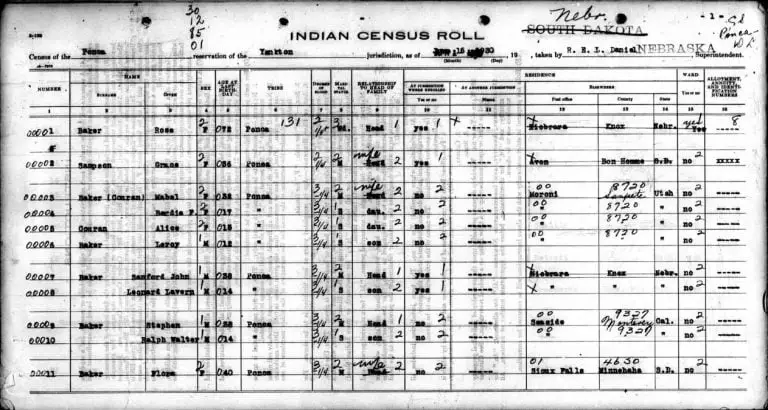 30
12
85
01
Nebr.
- 1 -
Sd
Ponca
5-128
INDIAN CENSUS ROLL
SOUTH DAKOTA
NEBRASKA
Census of the Ponca reservation of the Yankton jurisdiction, as of 1930, 19 , taken by R. E. L. Daniel Superintendent.
(Month) (Day)
NUMBER NAME SEX AGE AT LAST BIRTHDAY TRIBE DEGREE OF BLOOD MARITAL STATUS RELATIONSHIP TO HEAD OF FAMILY AT JURISDICTION WHERE ENROLLED AT ANOTHER JURISDICTION RESIDENCE WARD ALLOTMENT, ANNUITY, AND IDENTIFICATION NUMBERS
SURNAME GIVEN Yes or no Name ELSEWHERE Yes or no
Post office County State
1 2 3 4 5 6 7 8 9 10 11 12 13 14 15 16
131
00001 Baker Rose 2 F 072 Ponca Wd. Head 1 yes 1 x ----- Niobrara Knox Nebr. yes 8
00002 Sampson Grace 2 F 056 Ponca M wife Head 2 yes 1 ----- Avon Bon Homme S.D. no 2 xxxxx
00 8720
00003 Baker (Conran) Mabel 2 F 032 Ponca 3/4 M wife Head 2 no 2 ----- Moroni Sanpete Utah no 2 -----
00 8720
00004 " F. F 017 " 3/4 S dau. 2 no 2 ----- " " no 2 -----
00 8720
00005 Conran Alice 2 F 015 " 3/4 S dau. 2 no 2 ----- " " no 2 -----
00 8720
00006 Baker Leroy 1 M 012 " 3/4 S son 2 no 2 ----- " " no 2 -----
00007 Baker Sanford John 1 M 038 Ponca 3/4 M Head 1 yes 1 ----- Niobrara Knox Nebr. no 2 -----
00008 Leonard Lavern 1 M 014 " 3/4 S son 2 yes 1 ----- " " " no 2 -----
00 9327
00009 Baker Stephen 1 M Ponca 3/4 M Head 1 no 2 ----- Seaside Monterey Cal. no 2 -----
00 9327
00010 Ralph Walter 1 M 014 " 3/4 S son 2 no 2 ----- " " " no 2 -----
01 4650
00011 Baker Flora 2 F 040 Ponca 3/4 M wife Head 2 no 2 ----- Sioux Falls Minnehaha S.D. no 2 -----